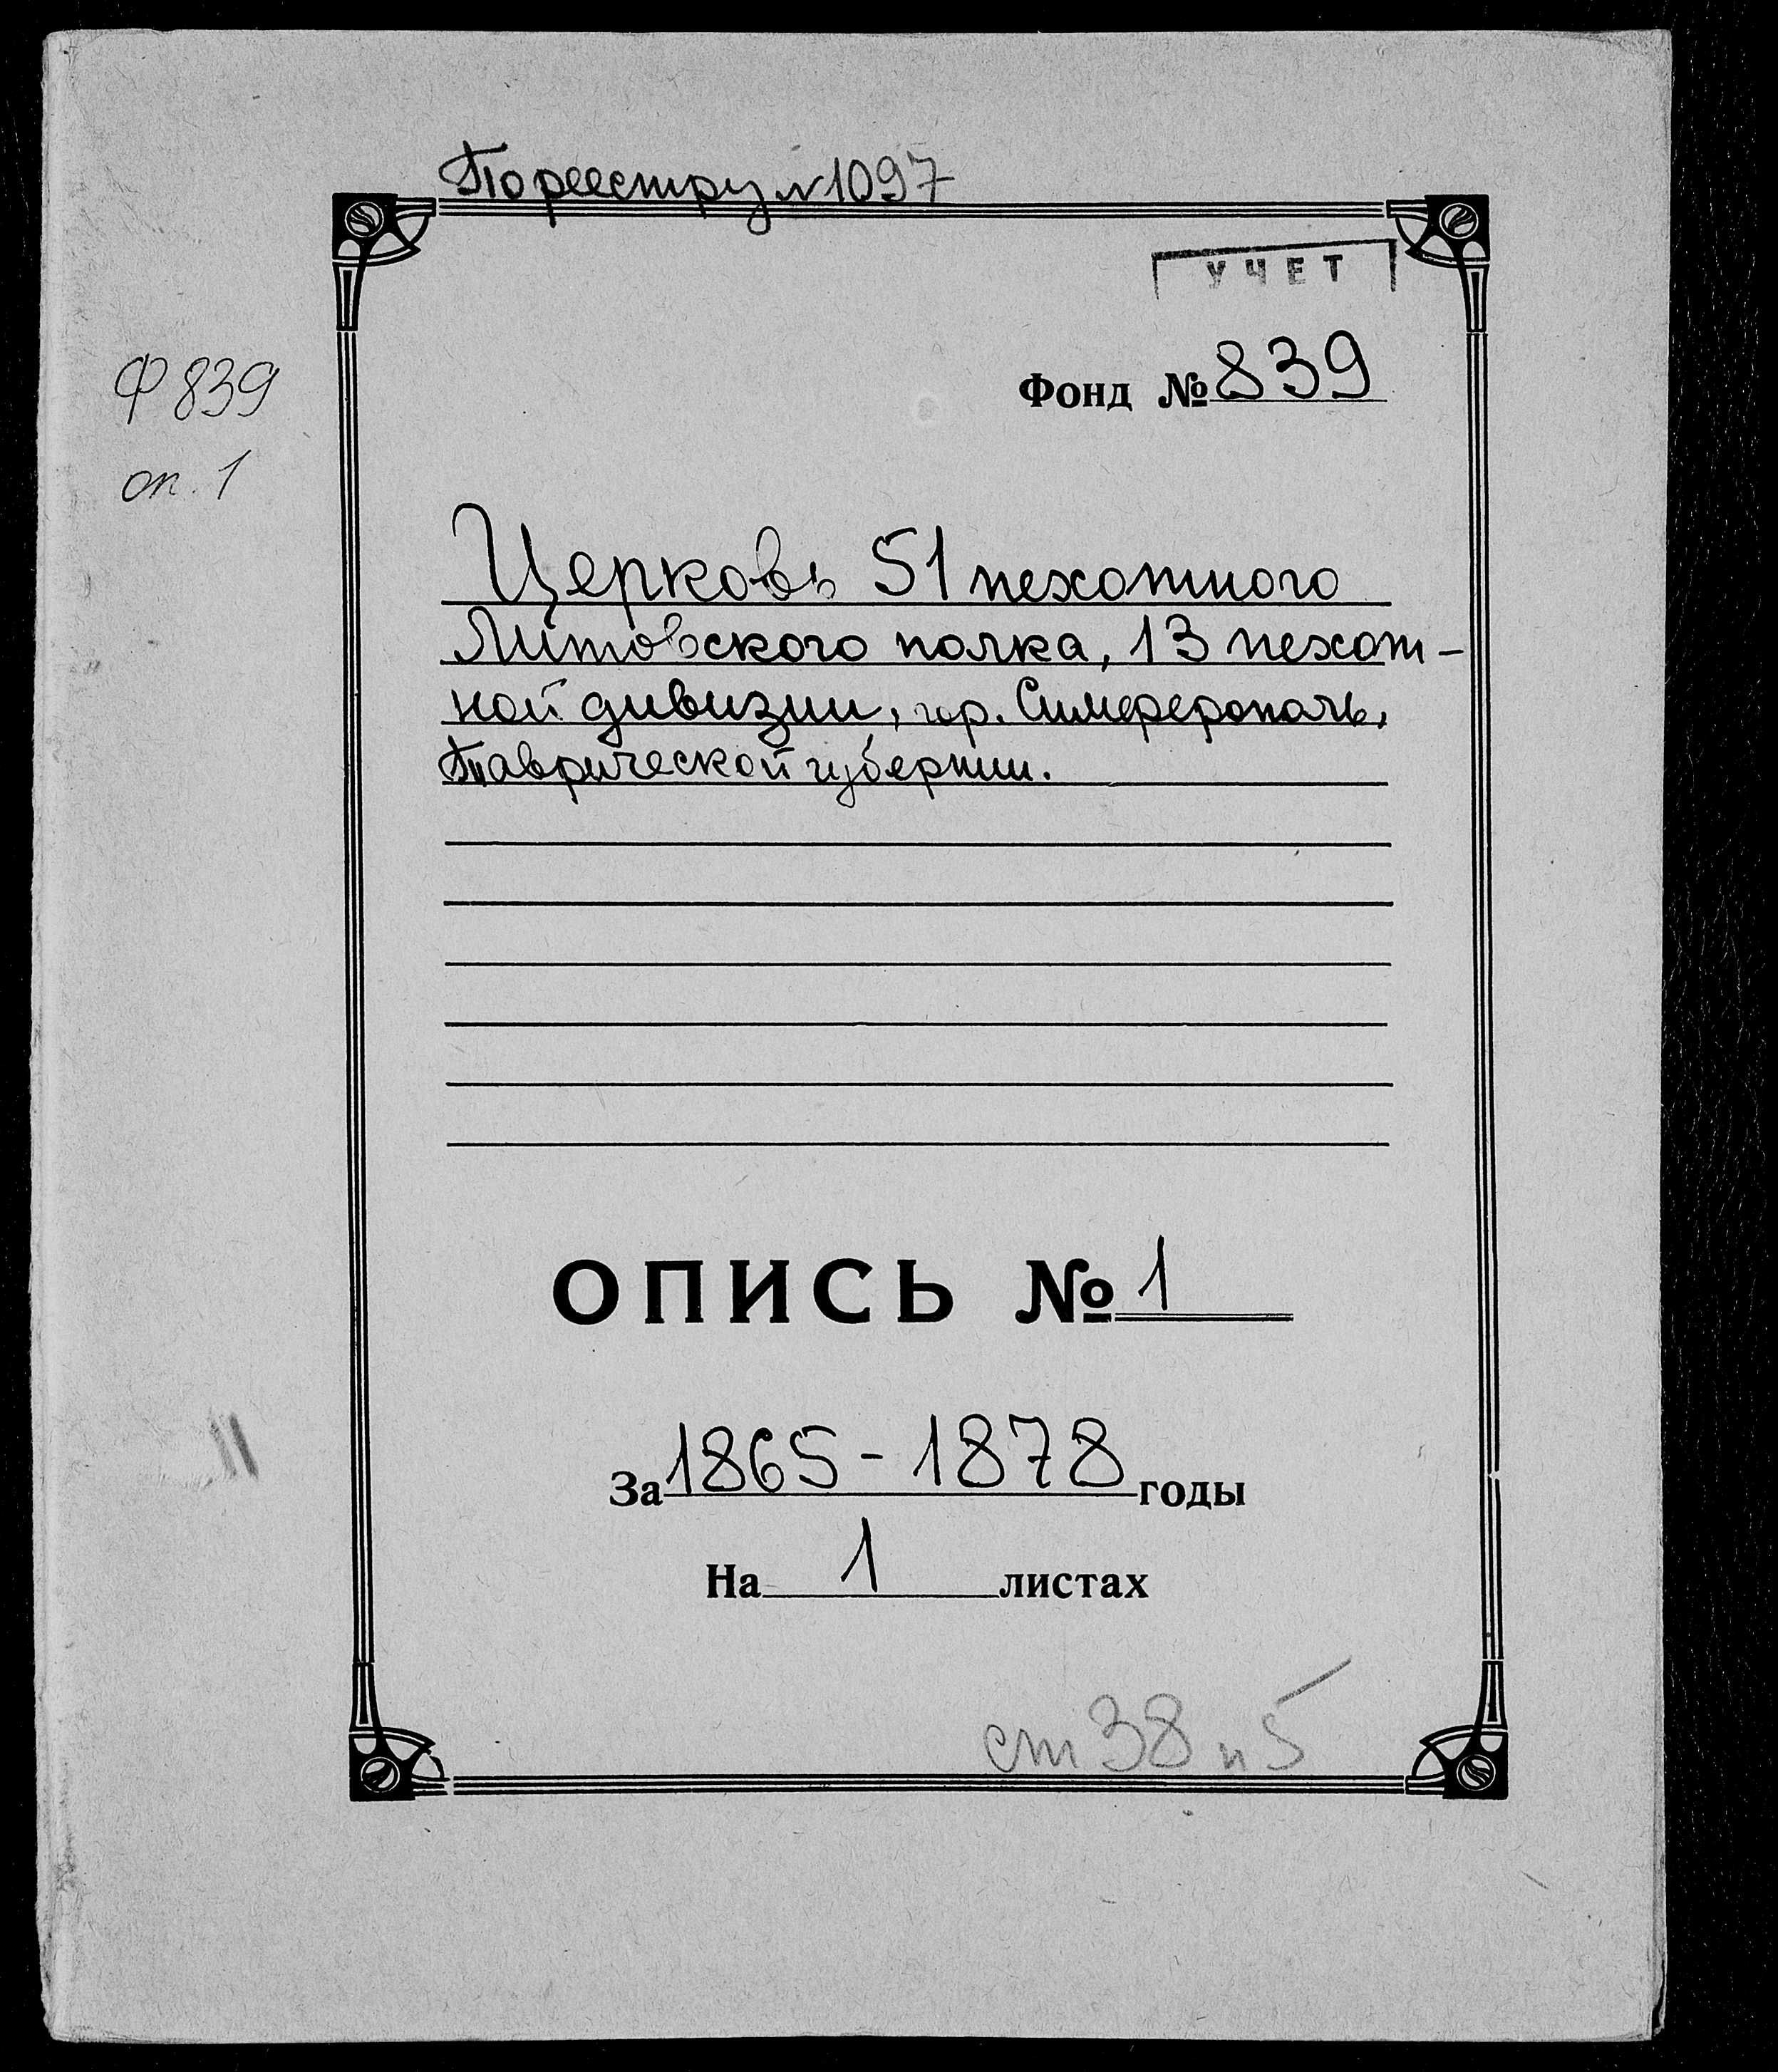 По реестру №1097
УЧЕТ
Фонд № 839
Ф 839
оп. 1
Церковь 51 пехотного
Литовского полка, 13 пехот-
ной дивизии, гор. Симферополь,
Таврической губернии.
ОПИСЬ № 1
За 1865-1878 годы
На 1 листах
ст 38 п 5